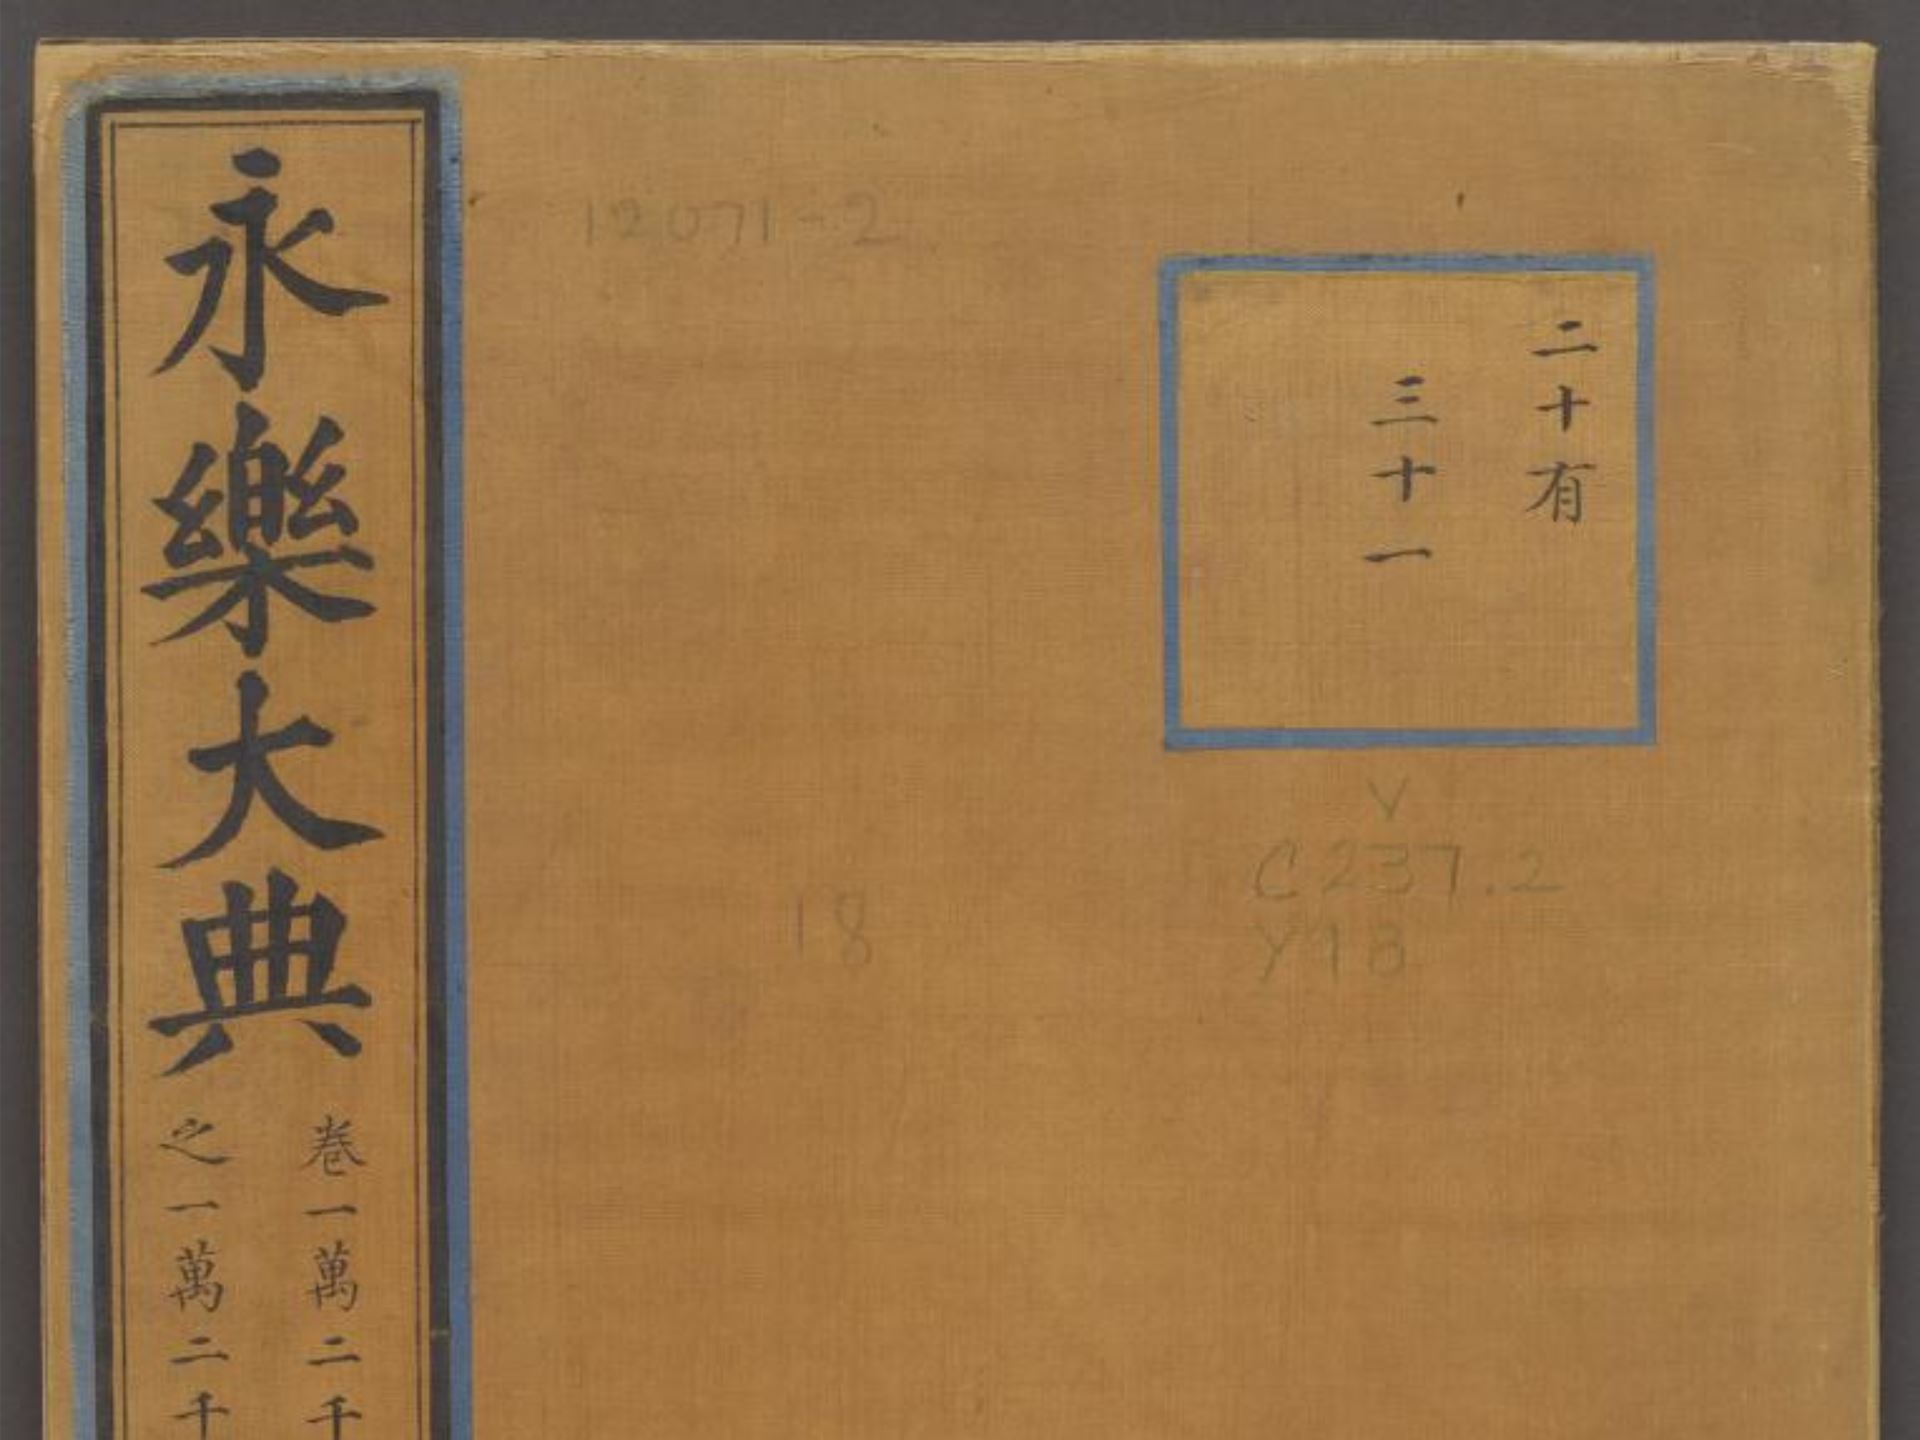 永樂大典
卷一萬二千
之一萬二千
二十有
三十一
12071-2
V
C237.2
Y1B
18